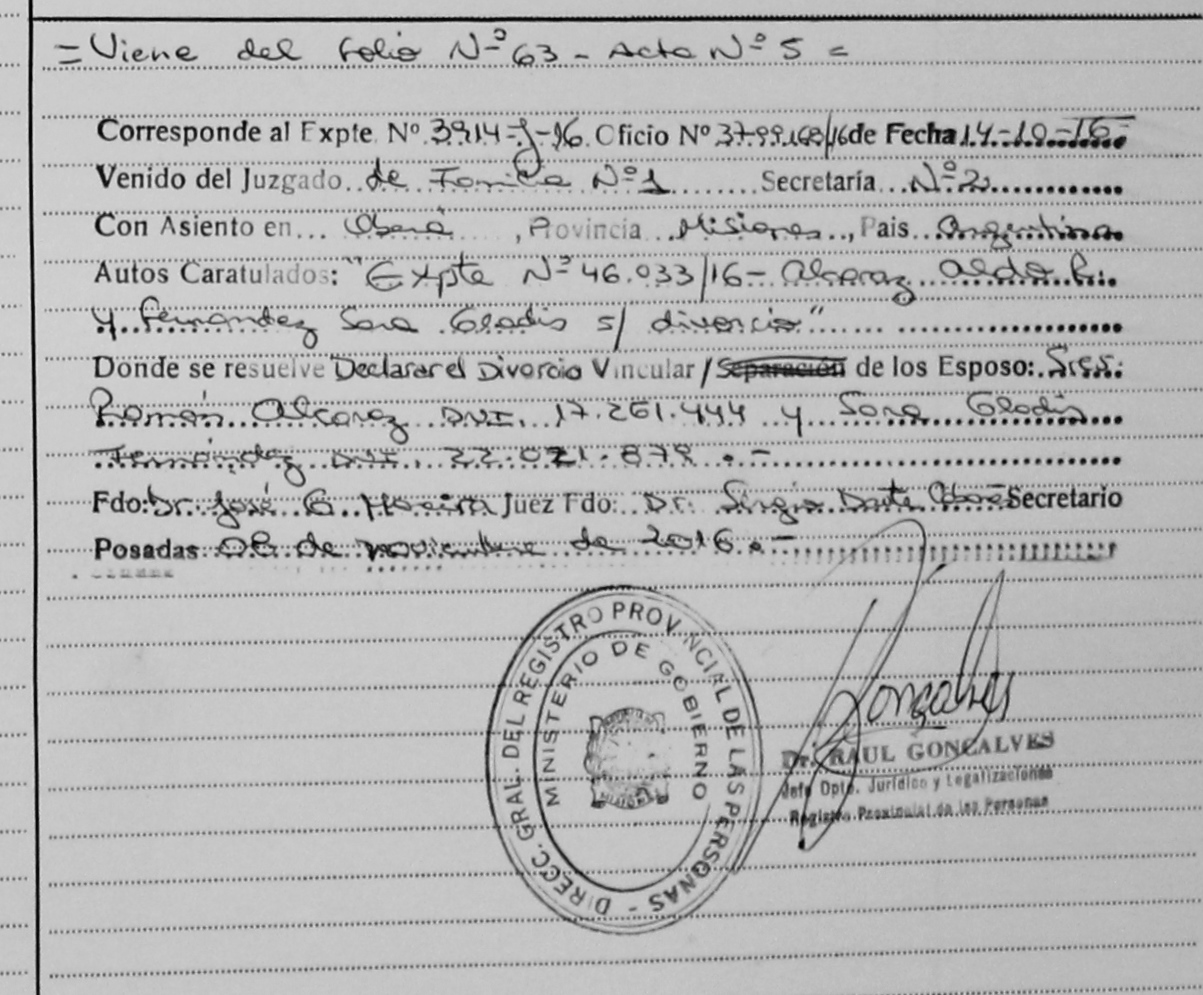 = Viene del Folio Nº 63 - Acta Nº 5 =
Corresponde al Expte. Nº 3914-J-16. Oficio Nº 3799168/16 de Fecha 14-10-16
Venido del Juzgado de Familia Nº 1 Secretaría Nº 2
Con Asiento en Oberá, Provincia Misiones, Pais Argentina
Autos Caratulados: "Expte Nº 46.033/16 - Alcaraz Aldo R.
y Fernandez Sara Gladis s/ divorcio"
Donde se resuelve Declarar el Divorcio Vincular / Separación de los Esposo: Sres.
Ramón Alcaraz DNI. 17.261.444 y Sara Gladis
Fernández DNI. 22.021.878.-
Fdo: Dr. José G. Juez Fdo: Dr. Sergio Secretario
Posadas 08 de noviembre de 2016.-
DIRECC. GRAL. DEL REGISTRO PROVINCIAL DE LAS PERSONAS -
MINISTERIO DE GOBIERNO
MISIONES
Goncalves
Dr. RAUL GONCALVES
Jefe Dpto. Jurídico y Legalizaciones
Registro Provincial de las Personas